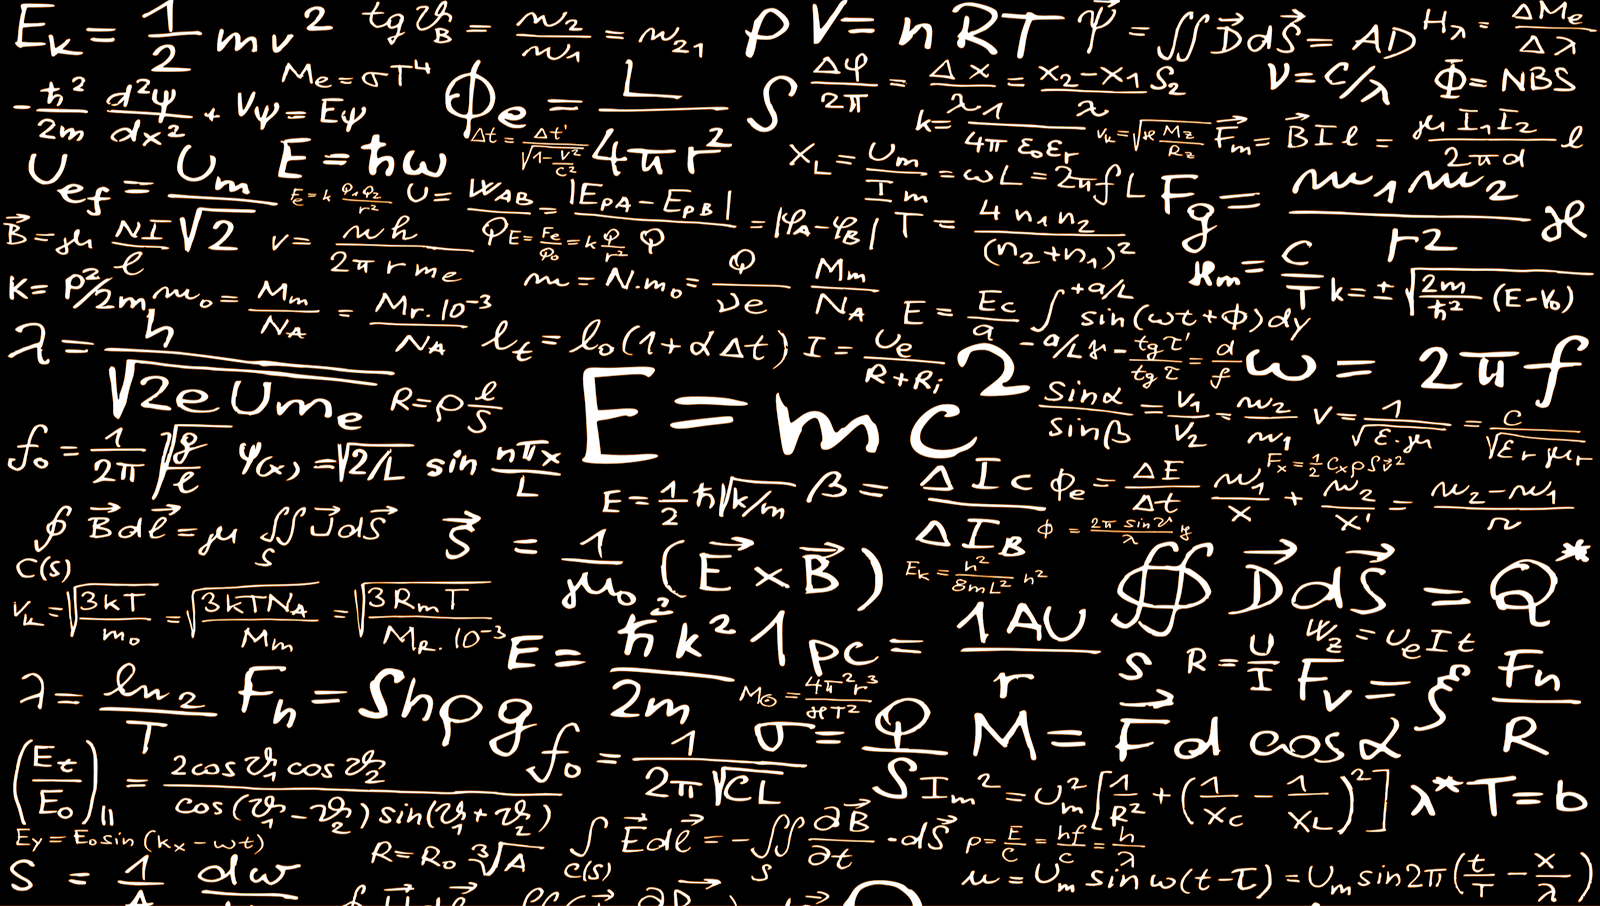 E_k = 1/2 mv²
tgϑ_B = n₂/n₁ = n₂₁
pV = nRT
Ψ⃗ = ∬D⃗dS⃗ = AD
H_λ = ΔM_e/Δλ
-ħ²/2m d²ψ/dx² + Vψ = Eψ
M_e = σT⁴
Φ_e = L/4πr²
S
Δφ/2π = Δx/λ = x₂-x₁/λ
S₂
ν = c/λ
Φ = NBS
Δt = Δt'/√(1-v²/c²)
k = 1/4π ε₀ε_r
v_k = √(ϰ M_z/R_z)
F⃗_m = B⃗Iℓ = μ I₁I₂/2πd ℓ
U_ef = U_m/√2
E = ħω
X_L = U_m/I_m = ωL = 2πfL
F_g = m₁m₂/r² ϰ
F_e = k Q₁Q₂/r²
U = W_AB/Q = |E_pA - E_pB|/Q = |φ_A-φ_B|
T = 4n₁n₂/(n₂+n₁)²
B⃗ = μ NI/ℓ
v = nh/2πrm_e
E = F_e/Q₀ = k Q/r²
K = p²/2m
m₀ = M_m/N_A = M_r.10⁻³/N_A
m = N.m₀ = Q/νe M_m/N_A
ϰ_m = C/T
k = ± √(2m/ħ² (E-V₀))
E = E_c/q
∫ +a/L -a/L sin(ωt+ϕ)dy
λ = h/√(2eUm_e)
ℓ_t = ℓ₀(1+αΔt)
I = U_e/R+R_i
γ = tgτ'/tgτ = d/f
ω = 2πf
R = ρ ℓ/S
E = mc²
sinα/sinβ = v₁/v₂ = n₂/n₁
v = 1/√(ε.μ) = c/√(ε_rμ_r)
f₀ = 1/2π √(g/ℓ)
ψ(x) = √2/L sin nπx/L
F_x = 1/2 C_xρSv²
E = 1/2 ħ√k/m
β = ΔI_c/ΔI_B
ϕ_e = ΔE/Δt
n₁/x + n₂/x' = n₂-n₁/r
∮ B⃗dℓ⃗ = μ ∬ J⃗dS⃗
C(S) S
S⃗ = 1/μ₀ (E⃗×B⃗)
ϕ = 2π sinϑ/λ y
E_k = h²/8mL² n²
∯ D⃗dS⃗ = Q*
v_k = √(3kT/m₀) = √(3kTN_A/M_m) = √(3R_mT/M_R.10⁻³)
E = ħ²k²/2m
1 pc = 1AU/r
S
R = U/I
W_z = U_eIt
F_v = ξ F_n/R
λ = ln2/T
F_h = Shρg
M_⊙ = 4π²r³/ϰT²
f₀ = 1/2π√CL
σ = Q/S
M = F⃗d cosα
(E_t/E₀)_|| = 2cosϑ₁cosϑ₂/cos(ϑ₁-ϑ₂)sin(ϑ₁+ϑ₂)
I_m² = U_m²[1/R² + (1/X_C - 1/X_L)²]
λ*T = b
E_y = E₀sin(k_x-ωt)
R = R₀ ³√A
∫ E⃗dℓ⃗ = -∬ ∂B⃗/∂t · dS⃗
C(S) S
p = E/c = hf/c = h/λ
S = 1/A dW
u = U_m sinω(t-τ) = U_m sin2π(t/T - x/λ)